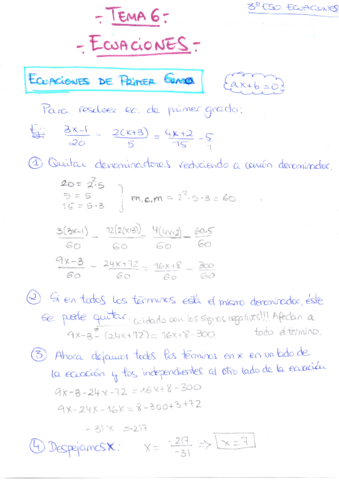 - TEMA 6 -
3º ESO ECUACIONES
- ECUACIONES. -
ECUACIONES DE PRIMER GRADO
ax+b=0
Para resolver ec. de primer grado:
Ej: (3x-1)/20 - 2(x+3)/5 = (4x+2)/15 - 5/1
① Quitar denominadores reduciendo a común denominador.
20 = 2²·5
5 = 5
15 = 5·3
m.c.m = 2²·5·3 = 60
3(3x-1)/60 - 12(2(x+3))/60 = 4(4x+2)/60 - 60·5/60
(9x-3)/60 - (24x+72)/60 = (16x+8)/60 - 300/60
② Si en todos los términos está el mismo denominador, éste
se puede quitar. cuidado con los signos negativos!!! Afectan a
todo el término.
9x-3-(24x+72)=16x+8-300
③ Ahora dejamos todos los términos en x en un lado de
la ecuación y los independientes al otro lado de la ecuación
9x-3-24x-72=16x+8-300
9x-24x-16x=8-300+3+72
-31x=-217
④ Despejamos x: x= -217/-31 => x=7